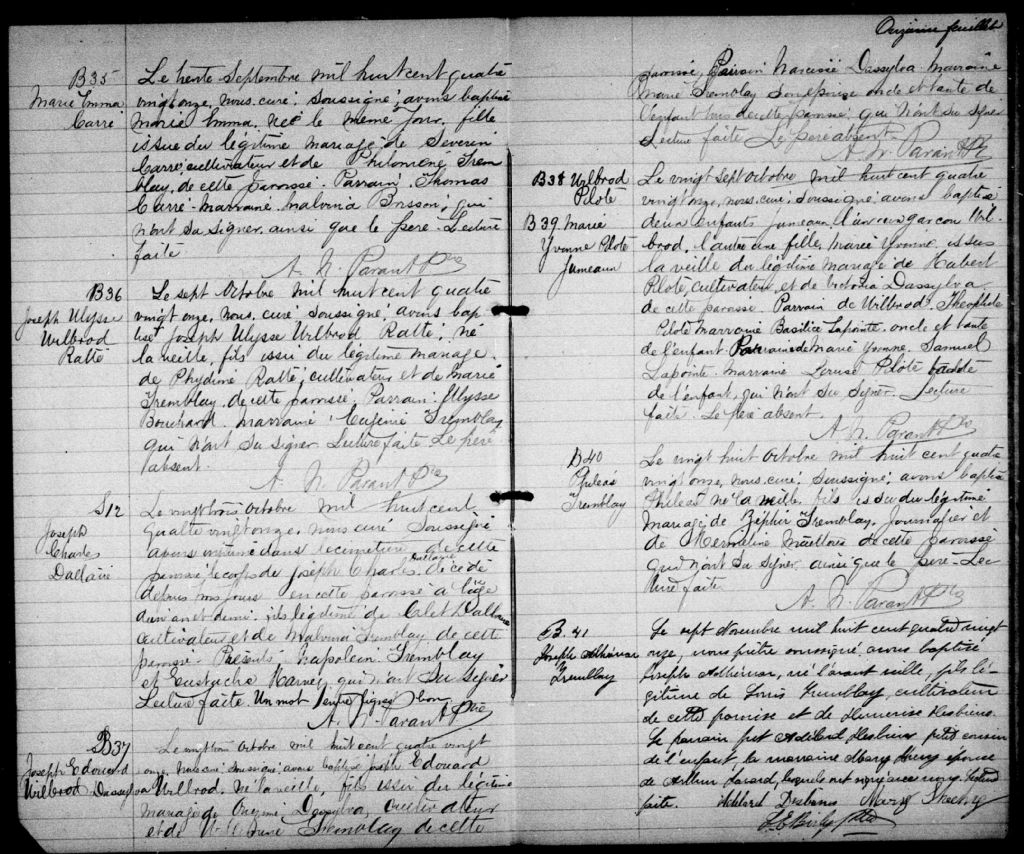 B35
Marie Emma
Carré
Le trente Septembre mil huit cent quatre
vingt onze, nous, curé, soussigné, avons baptisé
Marie Emma, née le même jour, fille
issue du légitime mariage de Séverin
Carré, cultivateur et de Philomène Trem
blay, de cette paroisse. Parrain, Thomas
Carré. Marraine, Malvina Brisson, qui
n'ont su signer, ainsi que le père. Lecture
faite
A. N. Parant Ptre
B36
Joseph Ulysse
Wilbrod
Ratté
Le sept Octobre mil huit cent quatre
vingt onze, nous, curé, soussigné, avons bap
tisé Joseph Ulysse Wilbrod Ratté, né
la veille, fils issu du légitime mariage
de Phydime Ratté, cultivateur et de Marie
Tremblay, de cette paroisse. Parrain, Ulysse
Bouchard, marraine, Eugénie Tremblay
qui n'ont su signer. Lecture faite. Le père
absent.
A. N. Parant Ptre
S12
Joseph
Charles
Dallaire
Le vingt trois Octobre mil huit cent
quatre vingt onze, nous curé, soussigné
avons inhumé dans le cimetière de cette
paroisse le corps de Joseph Charles Dallaire décédé
depuis trois jours en cette paroisse à l'âge
d'un an et demi, fils légitime de
cultivateur et de Malvina Tremblay de cette
paroisse. Présents, Napoléon Tremblay
et Eustache Harvey, qui n'ont su signer
Lecture faite. Un mot entre lignes bon
A. N. Parant Ptre
B37
Joseph Edouard
Wilbrod Dassylva
Le vingt trois Octobre mil huit cent quatre vingt
onze, nous curé, soussigné, avons baptisé Joseph Edouard
Wilbrod, né la veille, fils issu du légitime
mariage de Onézime Dassylva, cultivateur
et de Tremblay de cette
Onzième feuillet
paroisse, Parrain Narcisse Dassylva. Marraine
Marie Tremblay son épouse oncle et tante de
l'enfant tous de cette paroisse, qui n'ont su signer
Lecture faite Le père absent
A. N. Parant Ptre
B38 Wilbrod
Pilote
B39 Marie
Yvonne Pilote
Jumeaux
Le vingt sept Octobre mil huit cent quatre
vingt onze, nous, curé, soussigné avons baptisé
deux enfants jumeaux, l'un un garçon Wil
brod, l'autre une fille, Marie Yvonne, issus
la veille du légitime mariage de Hubert
Pilote, cultivateur, et de Victoria Dassylva
de cette paroisse. Parrain de Wilbrod, Théophile
Pilote Marraine Basilice Lapointe, oncle et tante
de l'enfant. Parrain de Marie Yvonne, Samuel
Lapointe, marraine Pilote
de l'enfant, qui n'ont su signer. Lecture
faite. Le père absent.
A. N. Parant Ptre
B40
Philéas
Tremblay
Le vingt huit Octobre mil huit cent quatre
vingt onze, nous, curé, soussigné, avons baptisé
Philéas né la veille, fils issu du légitime
mariage de Zéphir Tremblay, journalier et
de Herméline Mailloux de cette paroisse
qui n'ont su signer, ainsi que le père. Lec
ture faite.
A. N. Parant Ptre
B. 41
Joseph Adhémar
Tremblay
Le sept Novembre mil huit cent quatre vingt
onze, nous prêtre soussigné avons baptisé
Joseph Adhémar, né l'avant veille, fils lé-
gitime de Louis Tremblay, cultivateur
de cette paroisse et de Desbiens.
Le parrain fut Adélard Desbiens petit cousin
de l'enfant, la marraine Mary épouse
de Arthur lesquels ont signé avec nous. Lecture
faite. Adélard Desbiens Mary
Ptre